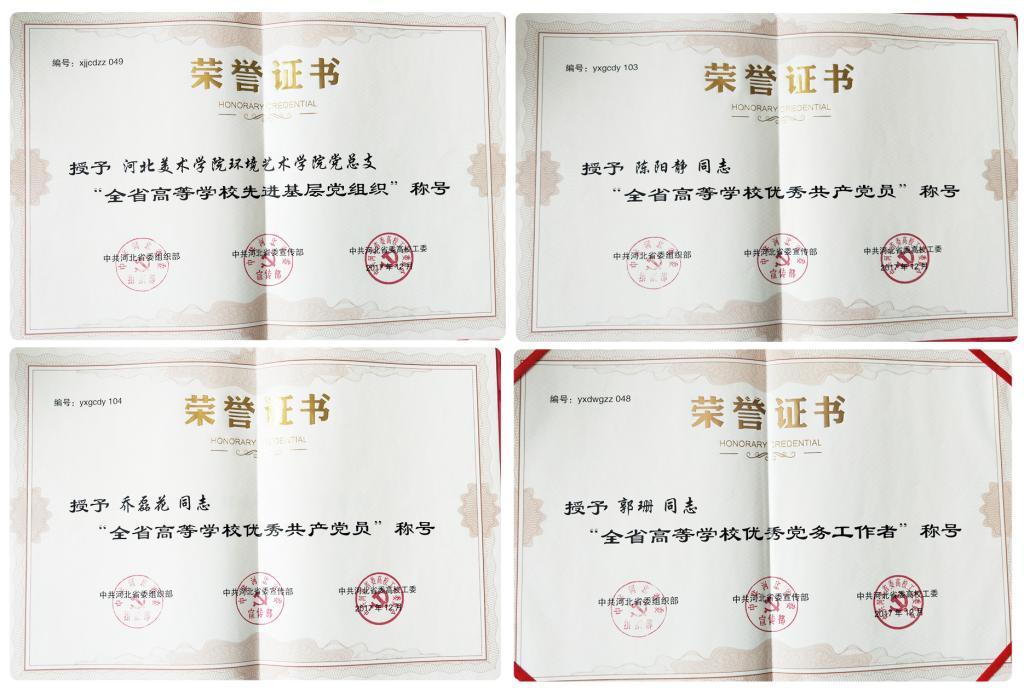 编号：xjjcdzz 049
荣誉证书
HONORARY CREDENTIAL
授予 河北美术学院环境艺术学院党总支
“全省高等学校先进基层党组织”称号
中共河北省委组织部 中共河北省委宣传部 中共河北省委高校工委
2017年12月
编号：yxgcdy 103
荣誉证书
HONORARY CREDENTIAL
授予 陈阳静 同志
“全省高等学校优秀共产党员”称号
中共河北省委组织部 中共河北省委宣传部 中共河北省委高校工委
2017年12月
编号：yxgcdy 104
荣誉证书
HONORARY CREDENTIAL
授予 乔磊花 同志
“全省高等学校优秀共产党员”称号
中共河北省委组织部 中共河北省委宣传部 中共河北省委高校工委
2017年12月
编号：yxdwgzz 048
荣誉证书
HONORARY CREDENTIAL
授予 郭珊 同志
“全省高等学校优秀党务工作者”称号
中共河北省委组织部 中共河北省委宣传部 中共河北省委高校工委
2017年12月